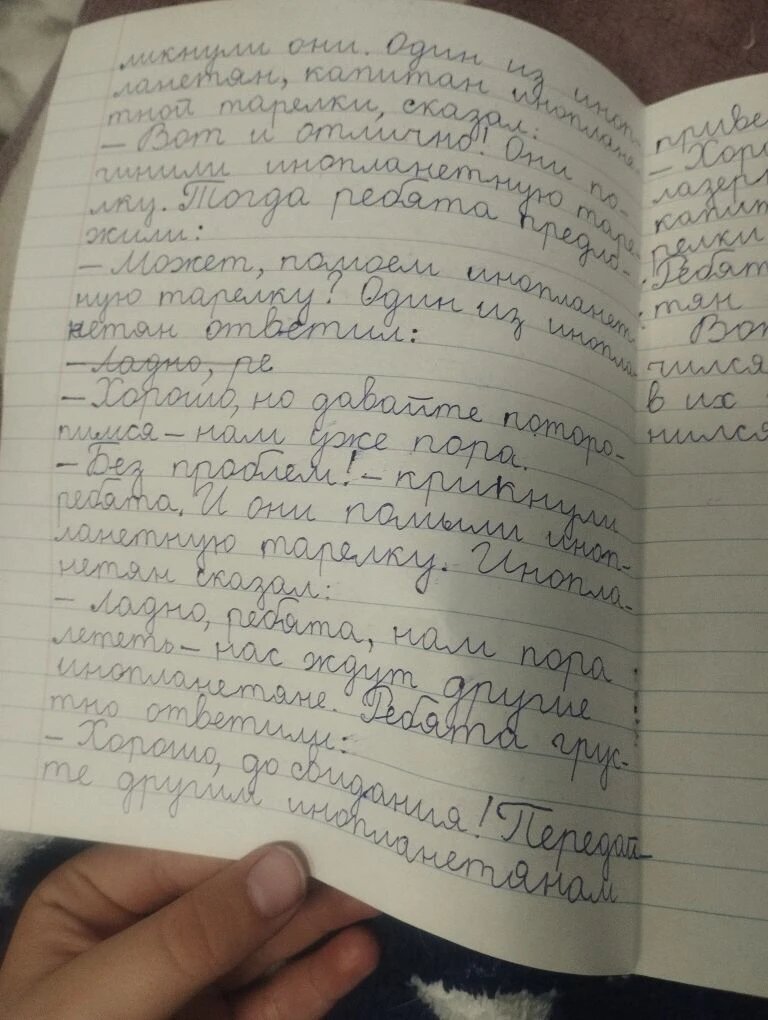 ликнули они. Один из иноп-
ланетян, капитан инопланe-
тной тарелки, сказал:
– Вот и отлично! Они по-
чинили инопланетную таре-
лку. Тогда ребята предло-
жили:
– Может, помоем инопланет-
ную тарелку? Один из инопла-
нетян ответил:
– Ладно, ре
– Хорошо, но давайте поторо-
пимся – нам уже пора.
– Без проблем! – крикнули
ребята. И они помыли иноп-
ланетную тарелку. Инопла-
нетян сказал:
– Ладно, ребята, нам пора
лететь – нас ждут другие
инопланетяне. Ребята грус-
тно ответили:
– Хорошо, до свидания! Передай-
те другим инопланетянам
приве
– Хор
лазер
капит
релки
Ребят
тян
Вот
чился
в их
нился